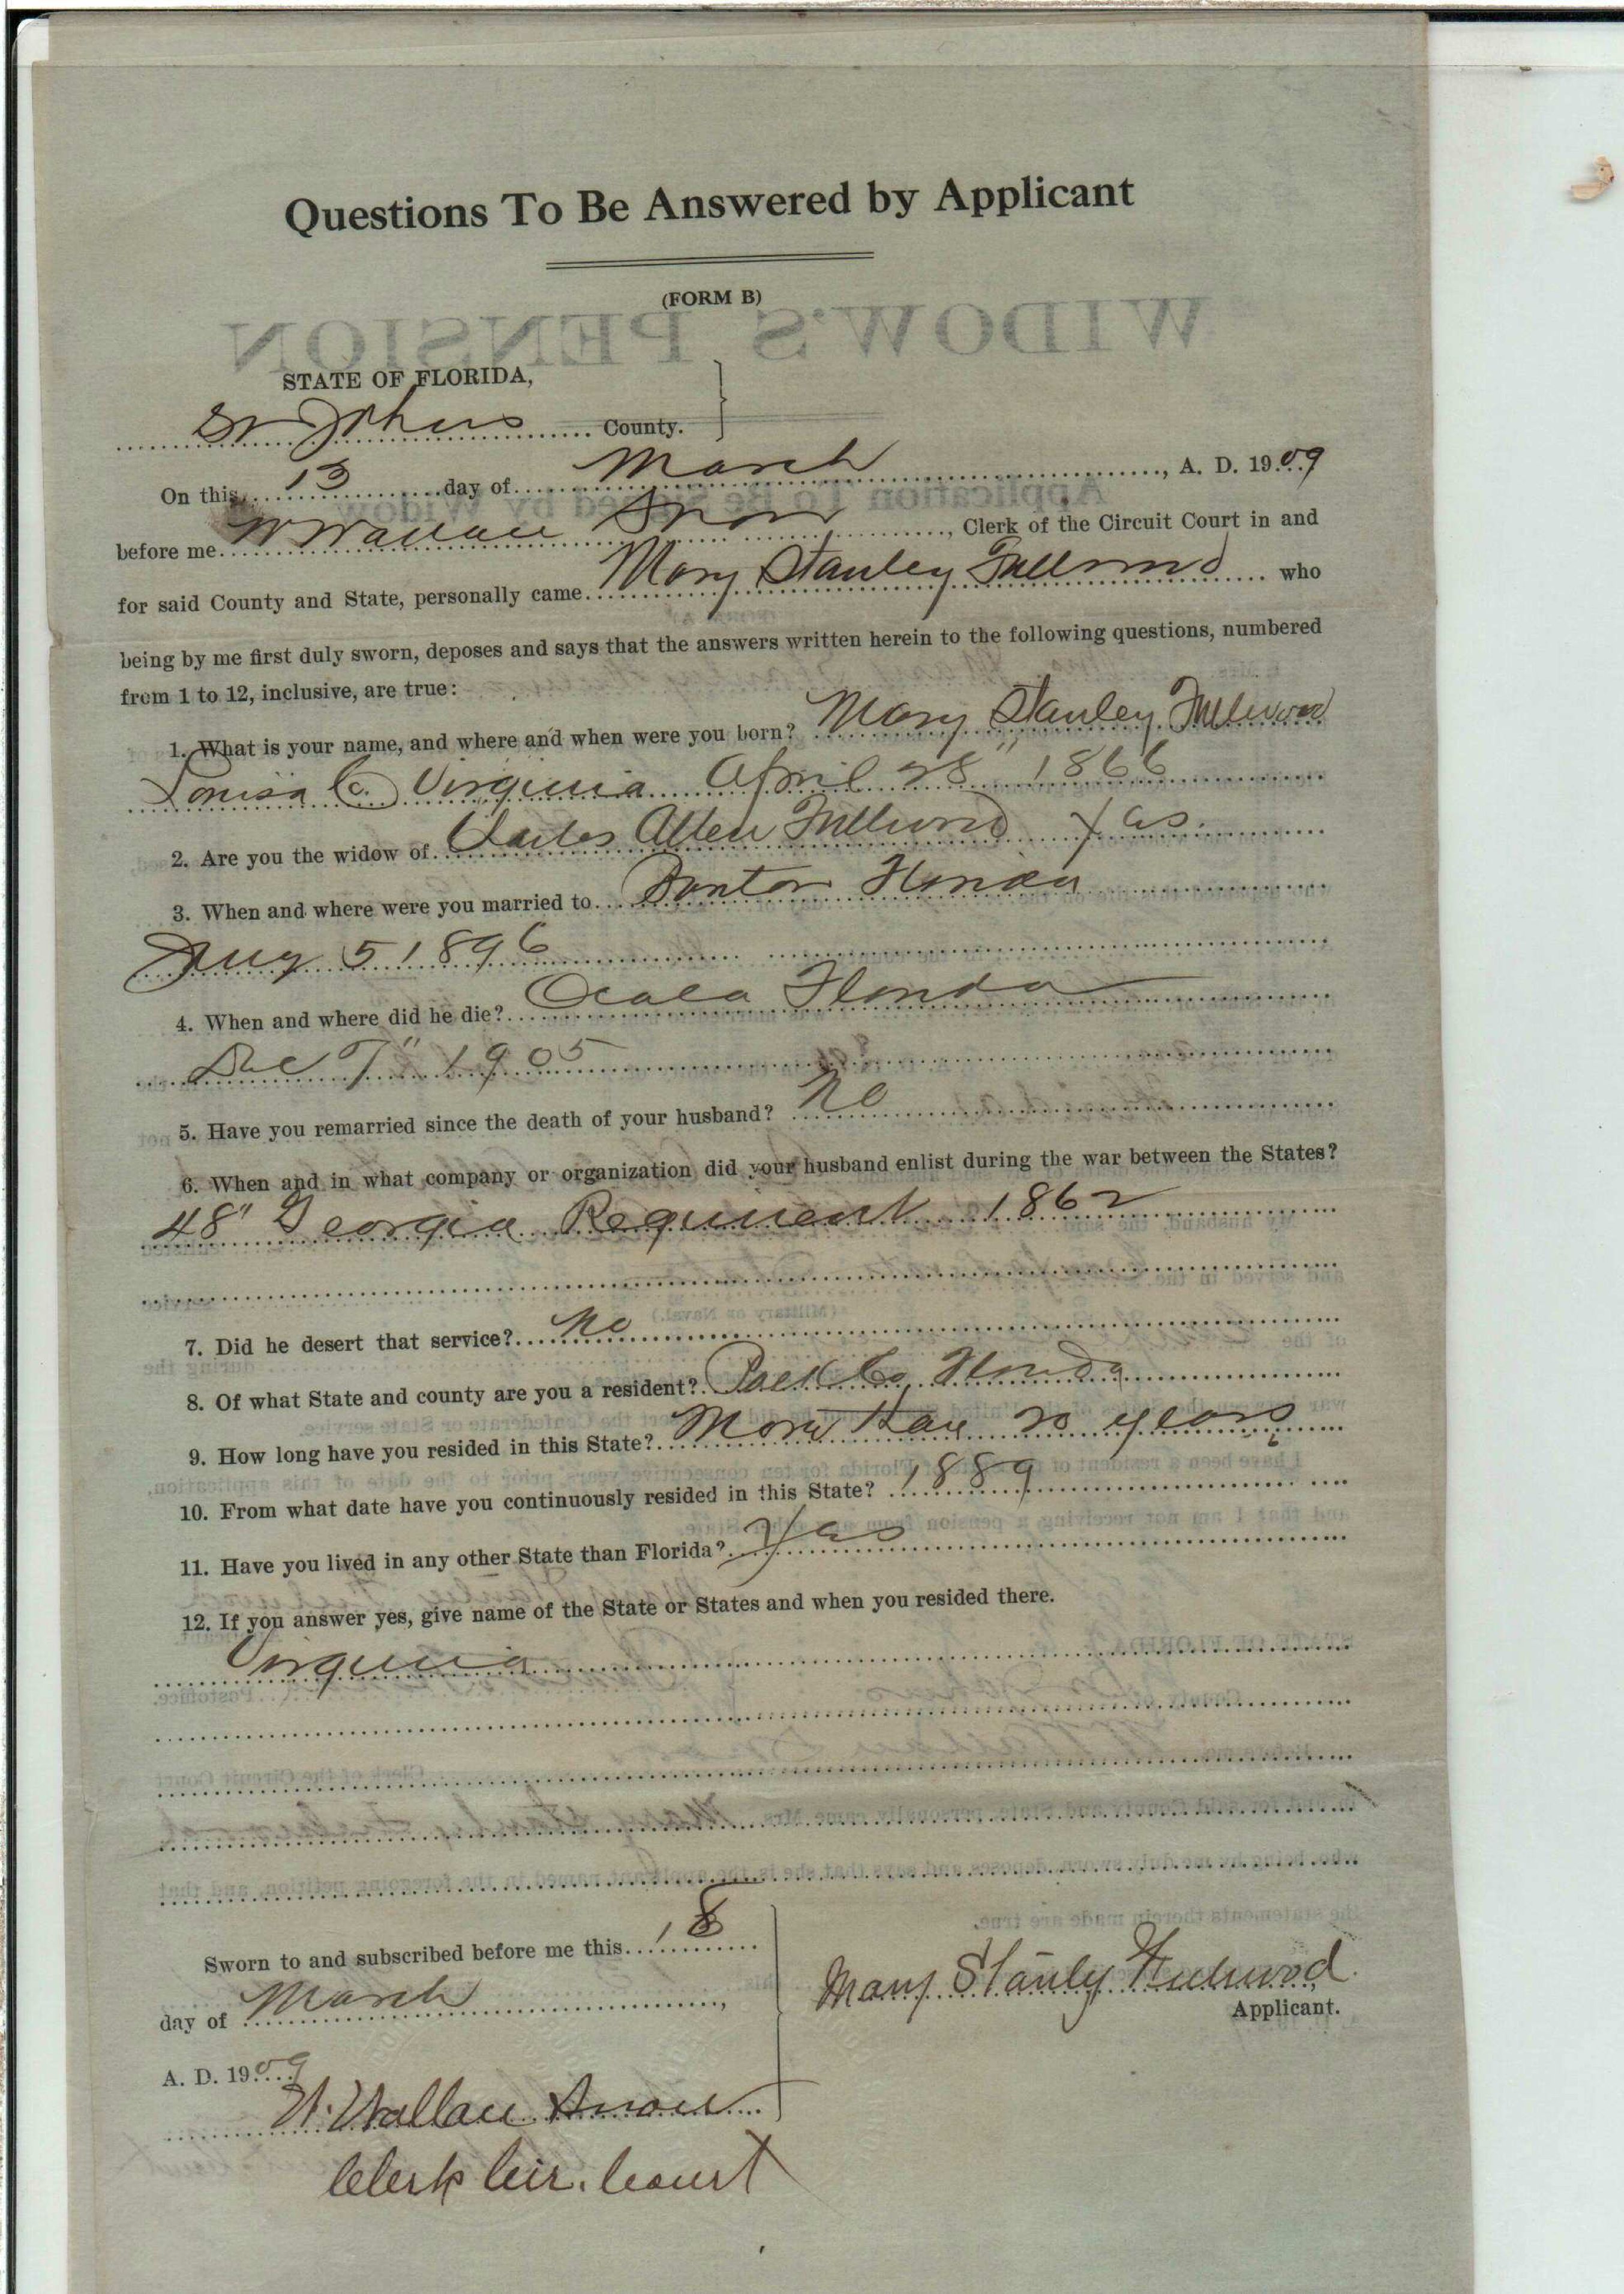 Questions To Be Answered by Applicant
(FORM B)
WIDOW'S PENSION
STATE OF FLORIDA,
St Johns County.
On this 13 day of March, A. D. 1909
before me W Wallace Snow, Clerk of the Circuit Court in and
for said County and State, personally came Mary Stanley Fullwood who
being by me first duly sworn, deposes and says that the answers written herein to the following questions, numbered
from 1 to 12, inclusive, are true:
1. What is your name, and where and when were you born? Mary Stanley Fullwood
Louisa Co. Virginia April 28" 1866
2. Are you the widow of Charles Allen Fullwood Yas.
3. When and where were you married to Florida
Aug 5 1896
4. When and where did he die? Ocala Florida
Dec 7" 1905
5. Have you remarried since the death of your husband? No
6. When and in what company or organization did your husband enlist during the war between the States?
48" Georgia Regiment 1862
7. Did he desert that service? No
8. Of what State and county are you a resident? Polk Co Florida
9. How long have you resided in this State? More than 20 years
10. From what date have you continuously resided in this State? 1889
11. Have you lived in any other State than Florida? Yas
12. If you answer yes, give name of the State or States and when you resided there.
Virginia
Sworn to and subscribed before me this
day of March,
A. D. 1909
Mary Stanley Fullwood
Applicant.
W. Wallace Snow
Clerk Cir. Court